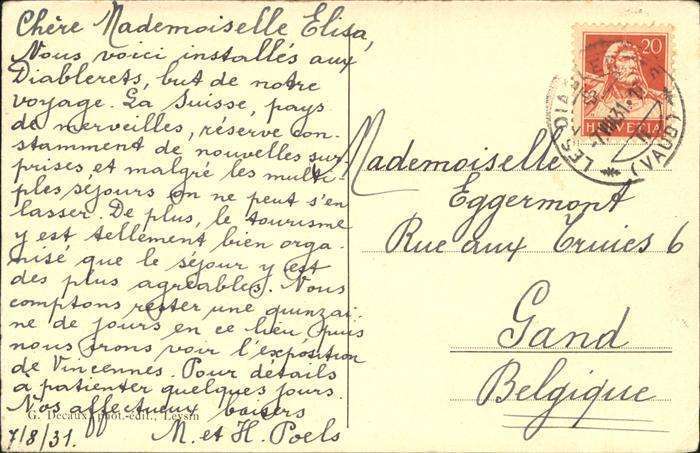 Chère Mademoiselle Elisa,
Nous voici installés aux
Diablerets, but de notre
voyage. La Suisse, pays
de merveilles, réserve con-
stamment de nouvelles sur-
prises et malgré les multi-
ples séjours on ne peut s'en
lasser. De plus, le tourisme
y est tellement bien orga-
nisé que le séjour y est
des plus agréables. Nous
comptons rester une quinzai-
ne de jours en ce lieu puis
nous irons voir l'exposition
de Vincennes. Pour détails
à patienter quelques jours.
Nos affectueux baisers
G. Decaux, phot.-édit., Leysin
7/8/31. M. et H. Poels
20
HELVETIA
LES DIABLERETS
(VAUD)
Mademoiselle
Eggermont
Rue aux Truies 6
Gand
Belgique